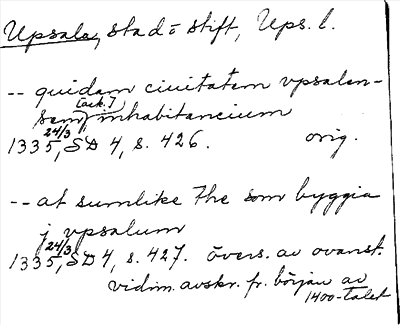 Upsala, stad o stift, Ups. l.
-- quidam ciuitatem vpsalen-
sem (ack.?) inhabitancium
1335 24/3, SD 4, s. 426. orig.
-- at sumlike the som byggia
j vpsalum
1335 24/3, SD 4, s. 427. övers. av ovanst.
vidim. avskr. fr. början av
1400-talet